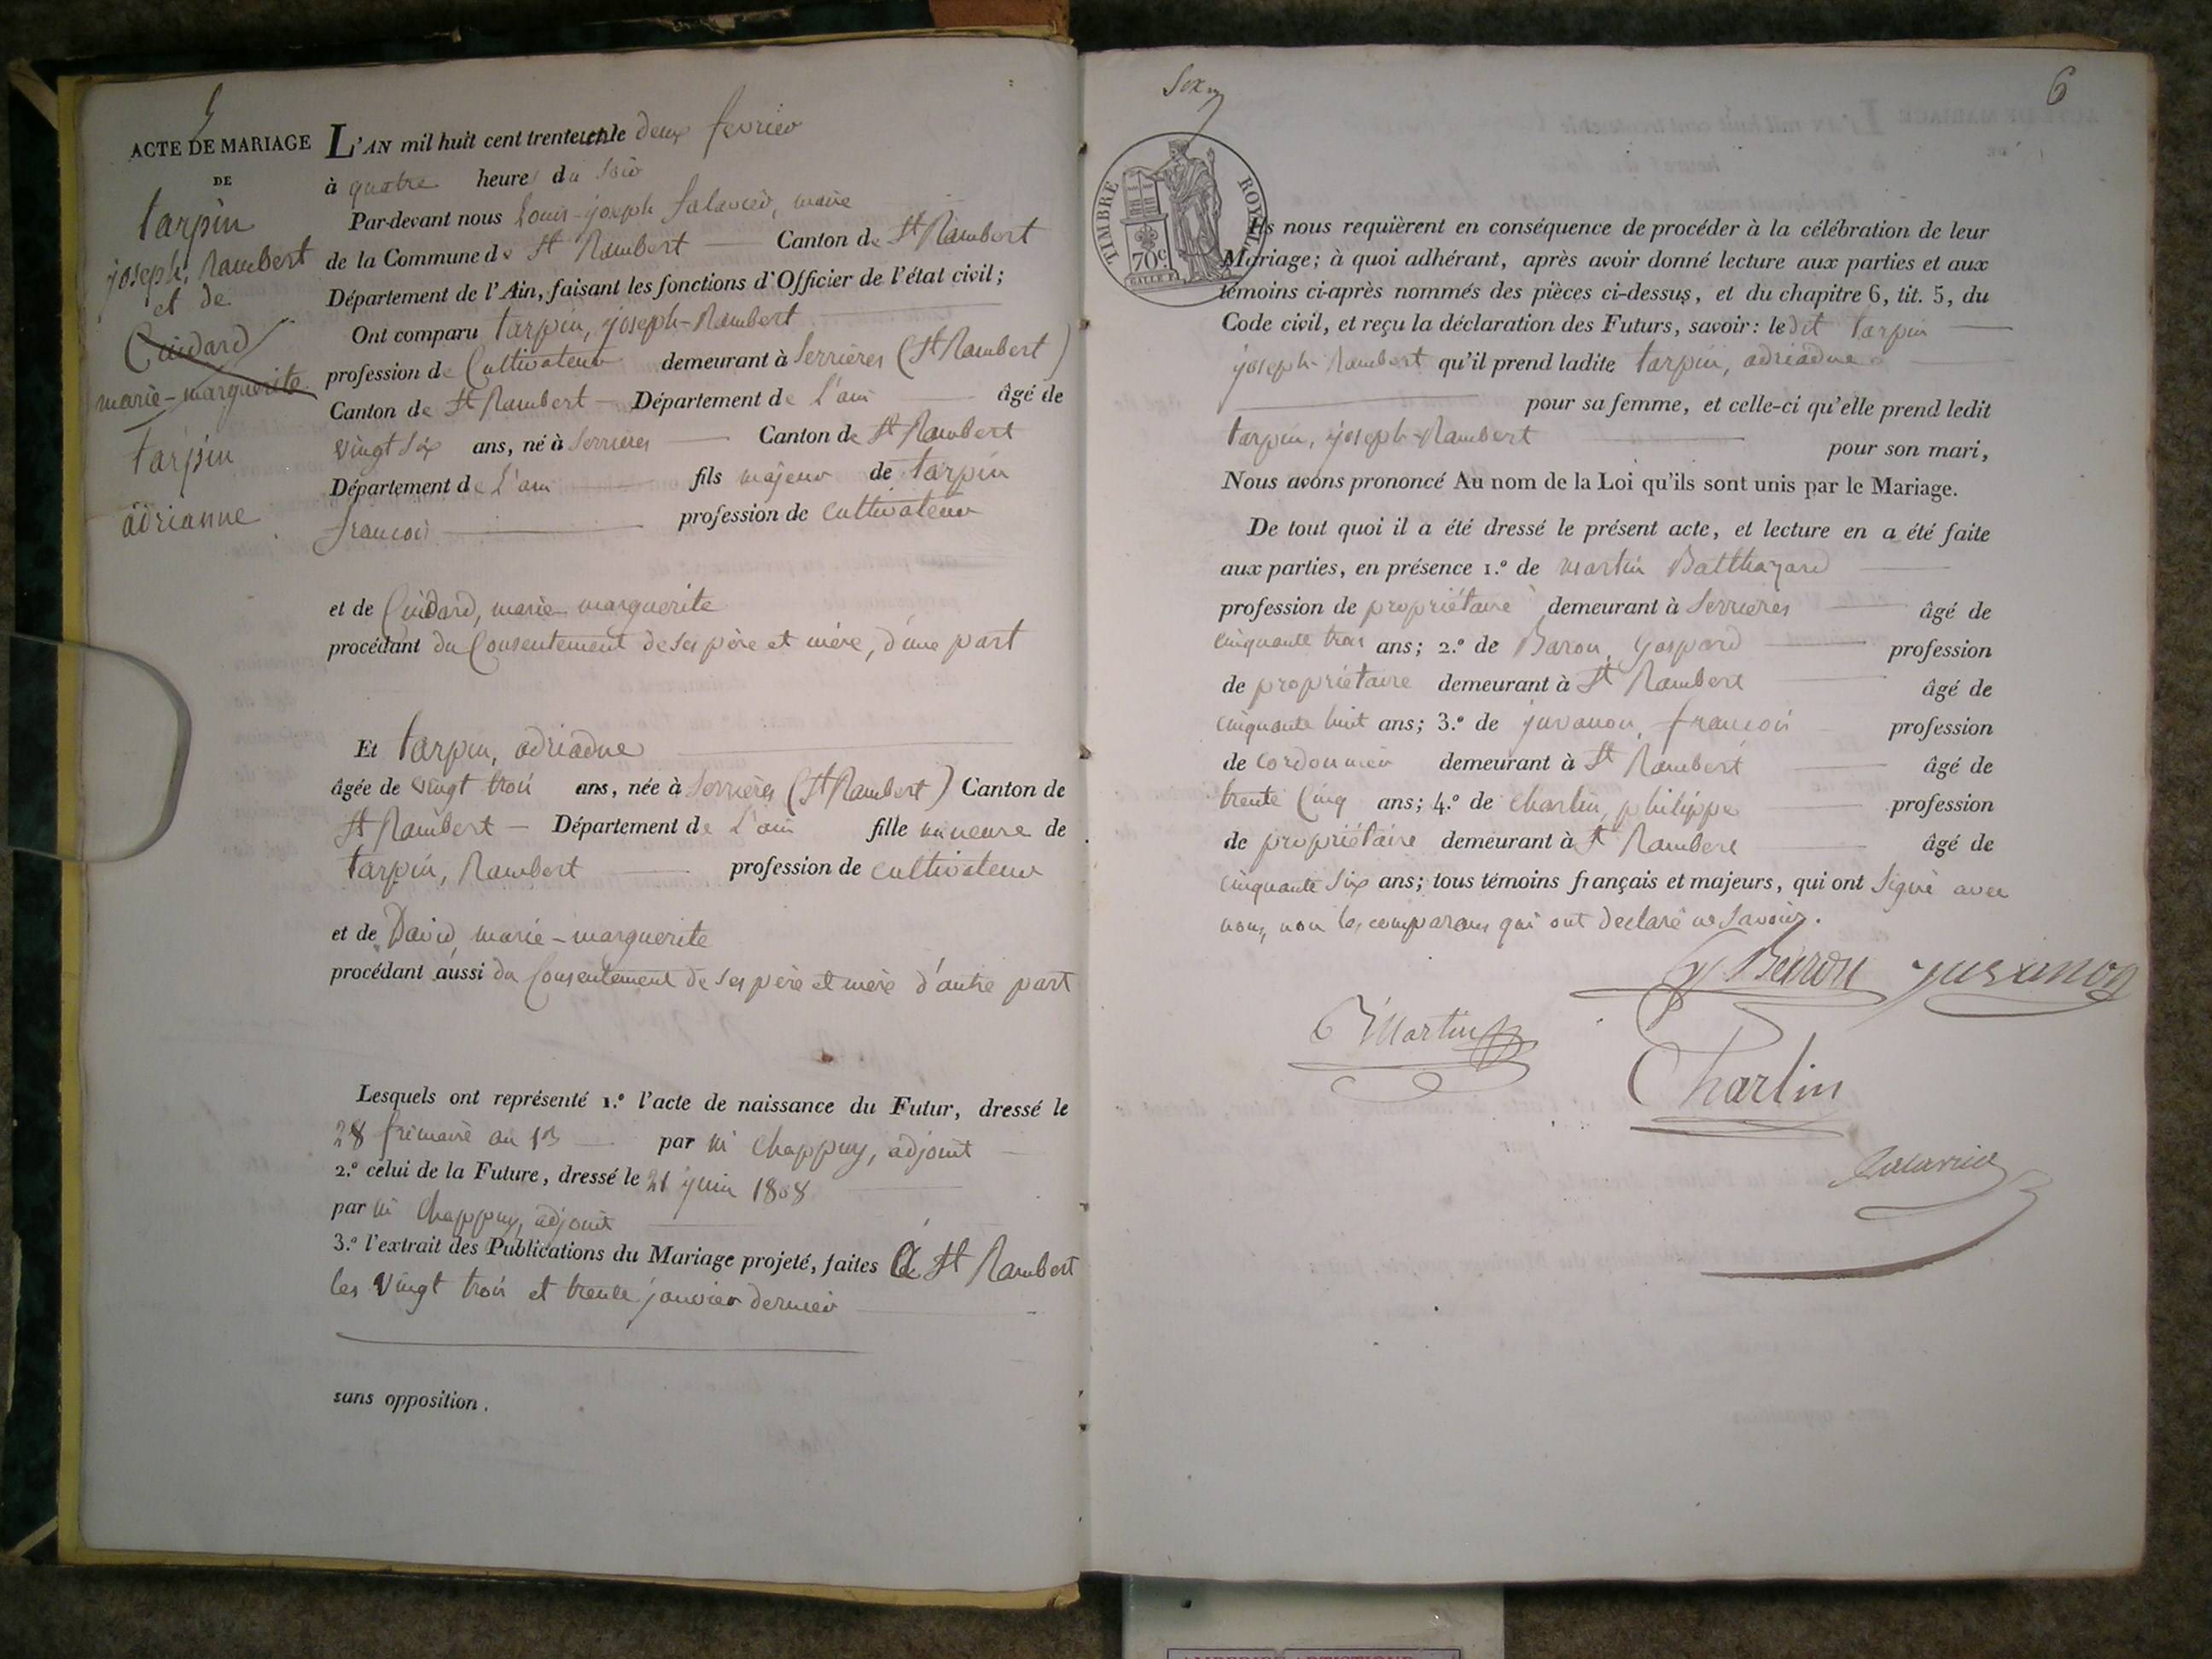 5
ACTE DE MARIAGE
DE
tarpin
joseph, Rambert
et de
Cuidard
marie-marguerite
tarpin
adrianne
L'AN mil huit cent trente un le deux fevrier
à quatre heures du soir
Par-devant nous Louis-joseph Salavied, maire
de la Commune de St Rambert Canton de St Rambert
Département de l'Ain, faisant les fonctions d'Officier de l'état civil;
Ont comparu tarpin, joseph-Rambert
profession de Cultivateur demeurant à Serrières (St Rambert)
Canton de St Rambert Département de L'ain âgé de
vingt six ans, né à Serrières Canton de St Rambert
Département de L'ain fils majeur de tarpin
francois profession de cultivateur
et de Cuidard, marie-marguerite
procédant du Consentement de ses père et mère, d'une part
Et tarpin, adriadne
âgée de vingt trois ans, née à Serrières (St Rambert) Canton de
St Rambert Département de L'ain fille mineure de
tarpin, Rambert profession de cultivateur
et de David, marie-marguerite
procédant aussi du Consentement de ses père et mère d'autre part
Lesquels ont représenté 1.º l'acte de naissance du Futur, dressé le
28 frimaire an 13 par m Chappuy, adjoint
2.º celui de la Future, dressé le 21 juin 1808
par m Chappuy, adjoint
3.º l'extrait des Publications du Mariage projeté, faites à St Rambert
les vingt trois et trente janvier dernier
sans opposition.
Six
6
TIMBRE ROYAL
70c
Ils nous requièrent en conséquence de procéder à la célébration de leur
Mariage; à quoi adhérant, après avoir donné lecture aux parties et aux
témoins ci-après nommés des pièces ci-dessus, et du chapitre 6, tit. 5, du
Code civil, et reçu la déclaration des Futurs, savoir: le dit tarpin
joseph-Rambert qu'il prend ladite tarpin, adriadne
pour sa femme, et celle-ci qu'elle prend ledit
tarpin, joseph-Rambert pour son mari,
Nous avons prononcé Au nom de la Loi qu'ils sont unis par le Mariage.
De tout quoi il a été dressé le présent acte, et lecture en a été faite
aux parties, en présence 1.º de Martin Balthazard
profession de propriétaire demeurant à Serrieres âgé de
cinquante trois ans; 2.º de Baron, Gaspard profession
de propriétaire demeurant à St Rambert âgé de
cinquante huit ans; 3.º de juvanon, francois profession
de cordonnier demeurant à St Rambert âgé de
trente cinq ans; 4.º de Charlin, philippe profession
de propriétaire demeurant à St Rambert âgé de
cinquante six ans; tous témoins français et majeurs, qui ont signé avec
nous, non les comparans qui ont declaré ne savoir.
G Beiron juvanon
B Martin
Charlin